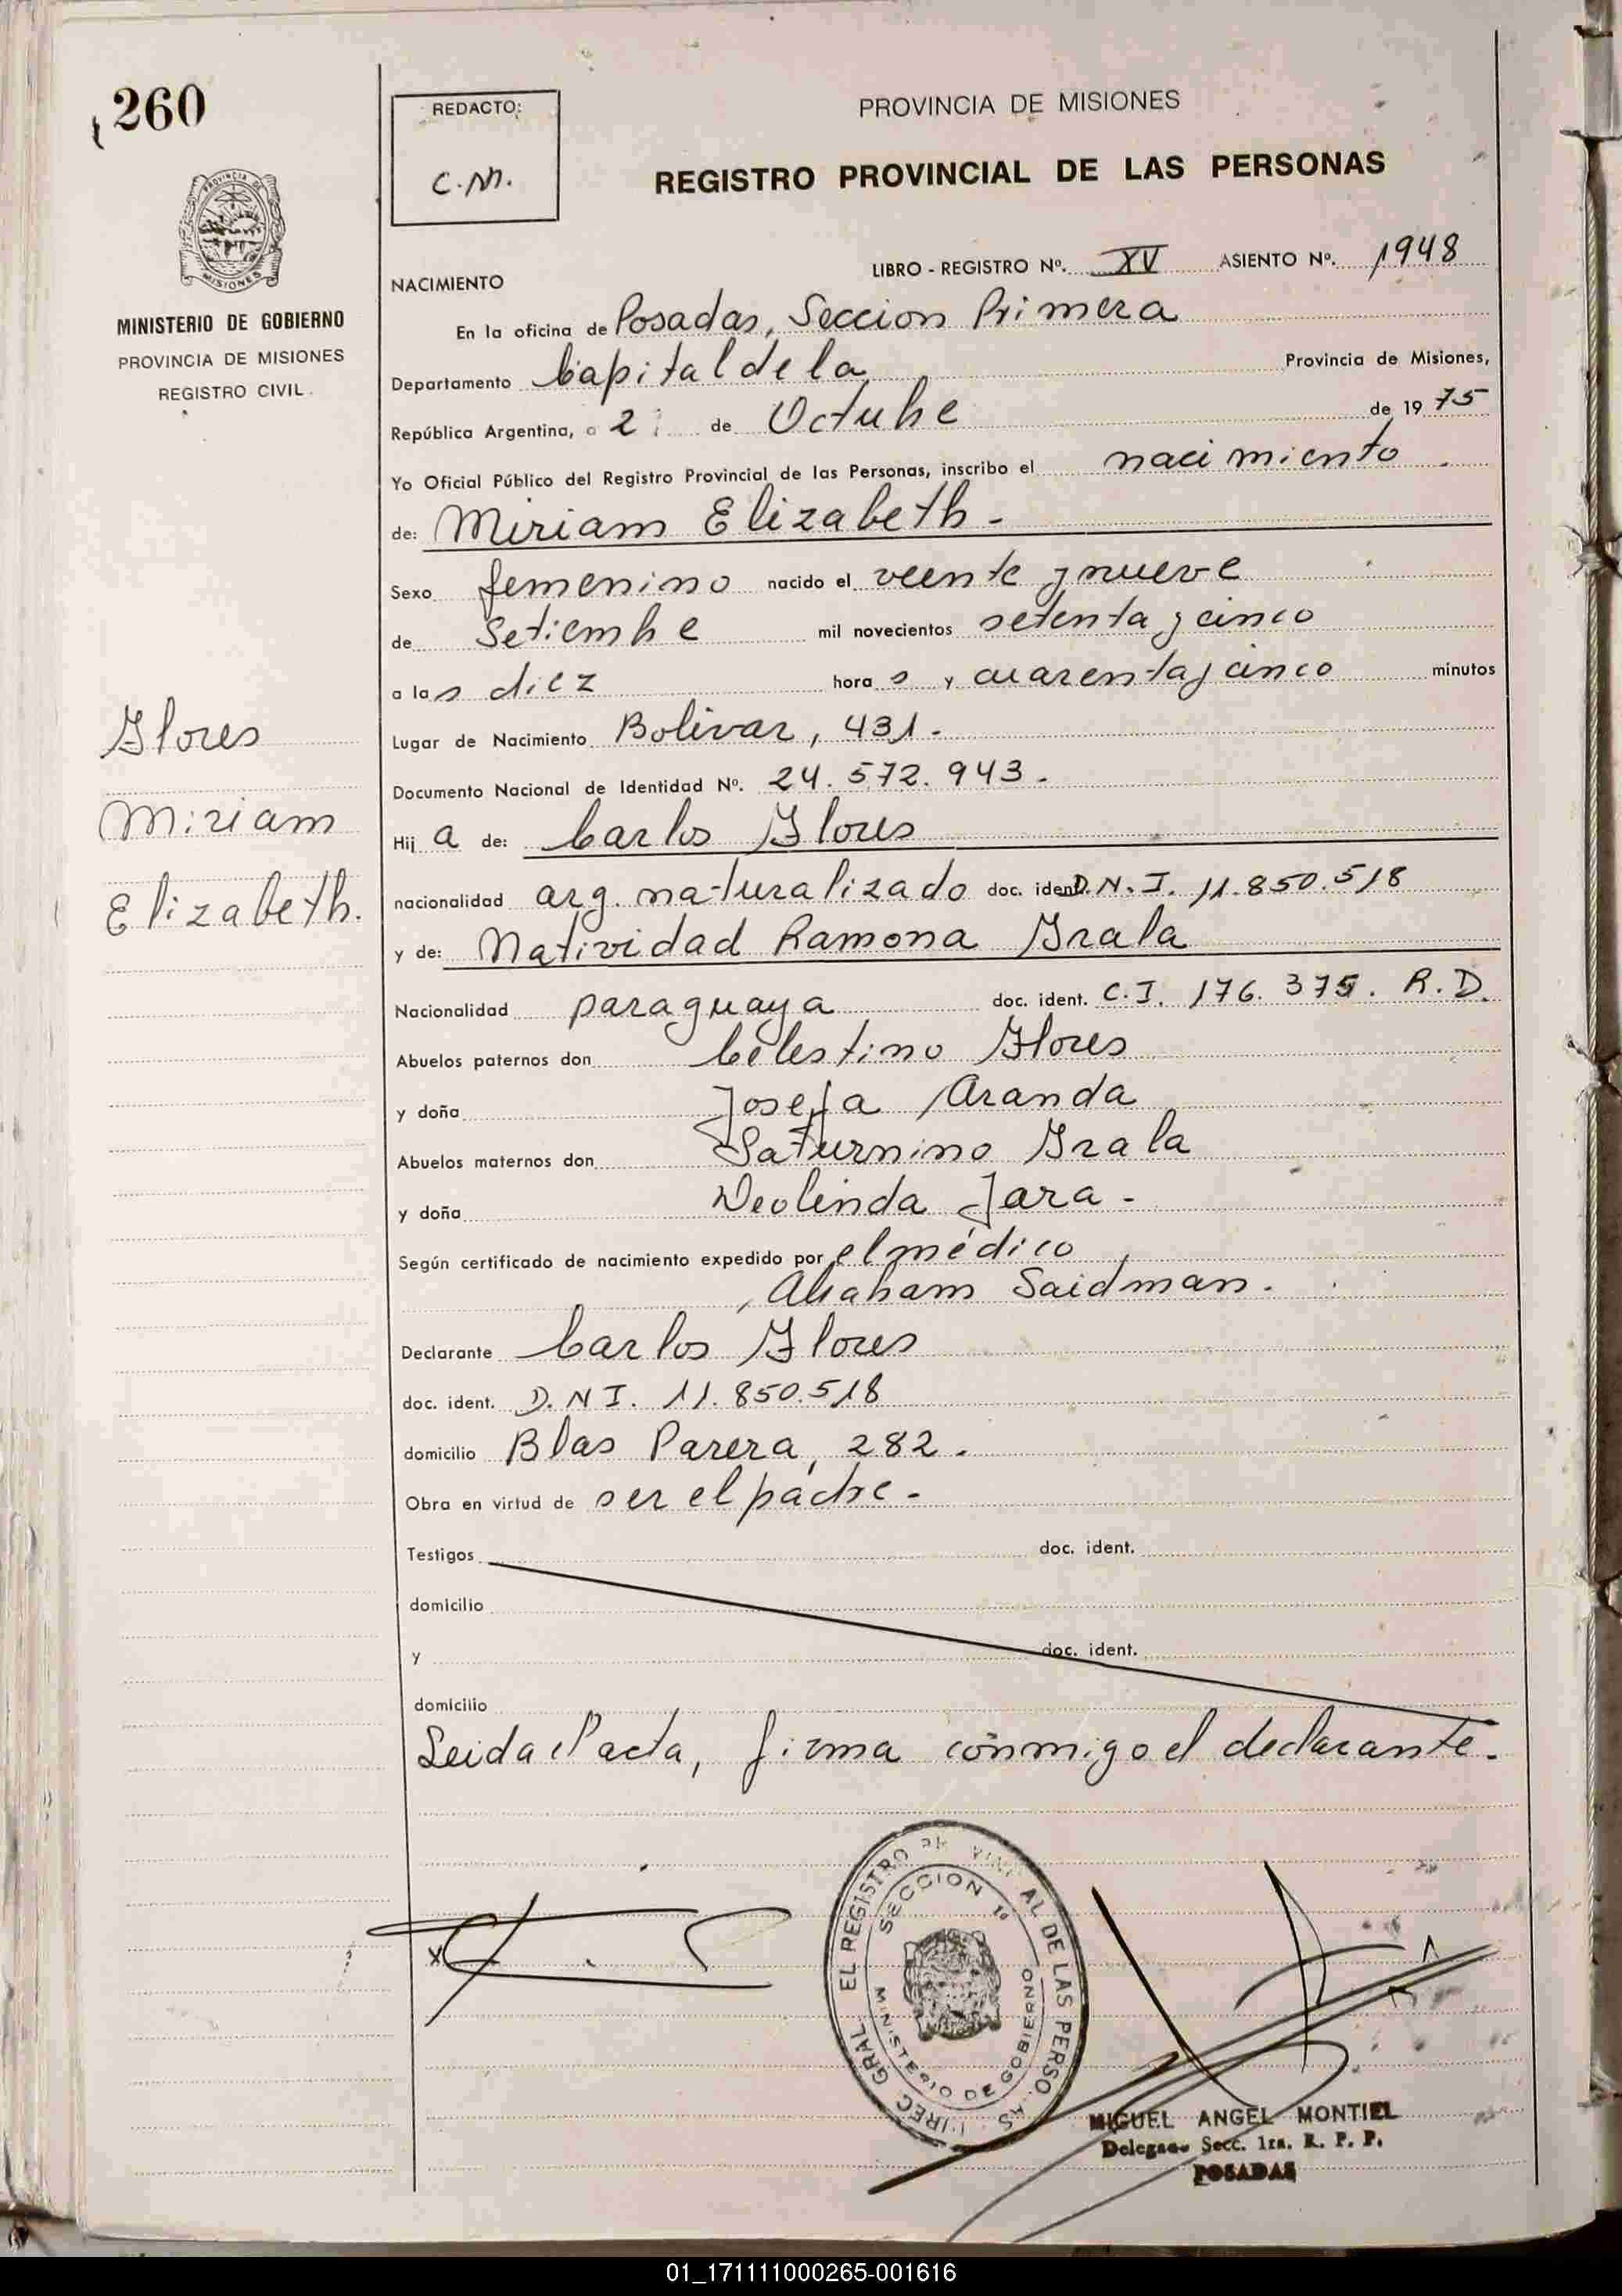 260
REDACTO:
C.M.
PROVINCIA DE MISIONES
REGISTRO PROVINCIAL DE LAS PERSONAS
PROVINCIA DE
MISIONES
MINISTERIO DE GOBIERNO
PROVINCIA DE MISIONES
REGISTRO CIVIL.
LIBRO - REGISTRO Nº. XV ASIENTO Nº. 1948
NACIMIENTO
En la oficina de Posadas, Seccion Primera
Departamento Capital de la Provincia de Misiones,
República Argentina, a 2 de Octubre de 1975
Yo Oficial Público del Registro Provincial de las Personas, inscribo el nacimiento
de: Miriam Elizabeth -
Sexo femenino nacido el veinte y nueve
de Setiembre mil novecientos setenta y cinco
a las diez horas y cuarenta y cinco minutos
Lugar de Nacimiento Bolivar, 431.-
Documento Nacional de Identidad Nº. 24.572.943.-
Hija de: Carlos Flores
nacionalidad arg. naturalizado doc. ident. D.N.I. 11.850.518
y de: Natividad Ramona Irala
Nacionalidad paraguaya doc. ident. C.I. 176.375. R.D.
Abuelos paternos don Celestino Flores
y doña Josefa Aranda
Abuelos maternos don Saturnino Irala
y doña Deolinda Jara -
Según certificado de nacimiento expedido por el médico
Abraham Saidman.
Declarante Carlos Flores
doc. ident. D.N I. 11.850.518
domicilio Blas Parera, 282.
Obra en virtud de ser el padre -
Testigos doc. ident.
domicilio
y doc. ident.
domicilio
Leida el acta, firma conmigo el declarante.-
Flores
Miriam
Elizabeth.
EL REGISTRO AL DE LAS PERSO AS
SECCION 1ª
MINISTERIO DE GOBIERNO
GRAL
MIGUEL ANGEL MONTIEL
Delegado Secc. 1ra. R. P. P.
POSADAS
01_171111000265-001616